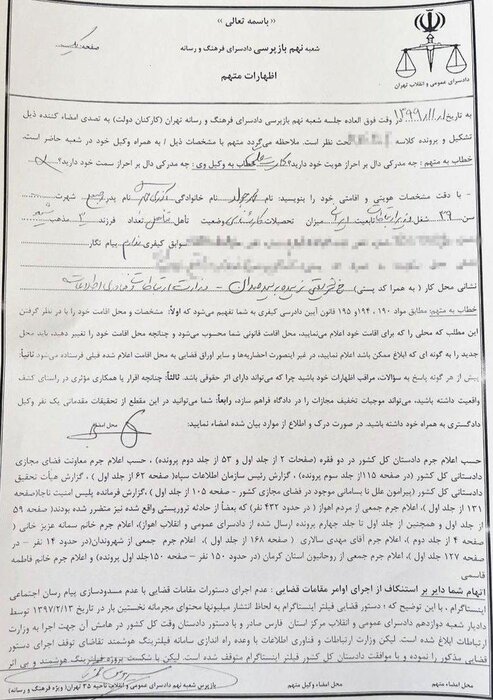 « باسمه تعالی »
شعبه نهم بازپرسی دادسرای فرهنگ و رسانه
اظهارات متهم
صفحه یک
دادسرای عمومی و انقلاب تهران
به تاریخ ۱۳۹۹/۱۱/۱ در وقت فوق العاده جلسه شعبه نهم بازپرسی دادسرای فرهنگ و رسانه تهران (کارکنان دولت) به تصدی امضاء کننده ذیل
تشکیل و پرونده کلاسه تحت نظر است. ملاحظه می‌گردد متهم با مشخصات ذیل / به همراه وکیل خود در شعبه حاضر است.
خطاب به متهم : چه مدرکی دال بر احراز هویت خود دارید؟ کارت ملی خطاب به وکیل وی : چه مدرکی دال بر احراز سمت خود دارید؟
- با دقت مشخصات هویتی و اقامتی خود را بنویسید: نام محمدجواد نام خانوادگی نام پدر شهرت
سن ۳۹ شغل وزیر ارتباطات تابعیت ایرانی میزان تحصیلات کارشناسی وضعیت تأهل متأهل تعداد فرزند ۳ مذهب شیعه
سوابق کیفری ندارم پیام نگار
نشانی محل کار ( به همراه کد پستی) خ شریعتی نرسیده به پل سیدخندان - وزارت ارتباطات و فناوری اطلاعات
خطاب به متهم: مطابق مواد ۱۹۰ ، ۱۹۴ و ۱۹۵ قانون آیین دادرسی کیفری به شما تفهیم می‌شود که اولاً: مشخصات و محل اقامت خود را با در نظر گرفتن
این مطلب که محلی را که برای اقامت خود اعلام می‌نمایید، محل اقامت قانونی شما محسوب می‌شود و چنانچه محل اقامت خود را تغییر دهید، باید محل
جدید را به گونه‌ای که ابلاغ ممکن باشد اعلام نمایید، در غیر اینصورت احضاریه‌ها و سایر اوراق قضایی به محل اقامت اعلام شده قبلی فرستاده می‌شود ثانیاً:
پیش از هر گونه پاسخ به سؤالات، مراقب اظهارات خود باشید چرا که می‌تواند دارای اثر حقوقی باشد. ثالثاً: چنانچه اقرار یا همکاری مؤثری در راستای کشف
واقعیت داشته باشید، می‌تواند موجبات تخفیف مجازات را در دادگاه فراهم سازد، رابعاً: شما می‌توانید در این مقطع از تحقیقات مقدماتی یک نفر وکیل
دادگستری به همراه خود داشته باشید. در صورت درک و اطلاع از موارد بیان شده امضاء نمایید: محل امضاء
حسب اعلام جرم دادستان کل کشور در دو فقره (صفحات ۲ از جلد اول و ۵۳ از جلد دوم پرونده) ، حسب اعلام جرم معاونت فضای مجازی
دادستانی کل کشور (در صفحه ۱۱۵از جلد سوم پرونده)، گزارش رئیس سازمان اطلاعات سپاه( صفحه ۶۲ از جلد اول ) ، گزارش هیأت تحقیق
دادستانی کل کشور (پیرامون علل نا بسامانی موجود در فضای مجازی کشور - صفحه ۱۰۵ از جلد اول) ، گزارش فرمانده پلیس امنیت ناجا(صفحه
۱۳۱ از جلد اول)، اعلام جرم جمعی از مردم اهواز ( در حدود ۴۲۲ نفر) که بعضاً از حادثه تروریستی واقع شده نیز متضرر شده بودند( صفحه ۵۹
از جلد اول و همچنین از جلد اول تا جلد چهارم پرونده ارسال شده از دادسرای عمومی و انقلاب اهواز)، اعلام جرم خانم سمانه عزیز خانی (
صفحه ۴ از جلد دوم)، اعلام جرم آقای مهدی سالاری ( صفحه ۱۶۸ از جلد اول )، اعلام جرم جمعی از شهروندان(در حدود ۱۴ نفر – در
صفحه ۱۲۷ جلد اول)، و اعلام جرم جمعی از روحانیون استان کرمان (در حدود ۱۵۰ نفر - صفحه ۱۵۰جلد اول) و اعلام جرم خانم فاطمه
قاسمی
اتهام شما دایر بر استنکاف از اجرای اوامر مقامات قضایی : عدم اجرای دستورات مقامات قضایی با عدم مسدودسازی پیام رسان اجتماعی
اینستاگرام ، با این توضیح که : دستور قضایی فیلتر اینستاگرام به لحاظ انتشار میلیونها محتوای مجرمانه نخستین بار در تاریخ ۱۳۹۷/۲/۱۳ توسط
دادیار شعبه دوازدهم دادسرای عمومی و انقلاب مرکز استان فارس صادر و با دستور دادستان وقت کل کشور در هامش آن جهت اجرا به وزارت
ارتباطات ابلاغ شده است. لیکن وزارت ارتباطات و فناوری اطلاعات با وعده راه اندازی سامانه فیلترینگ هوشمند تقاضای توقف اجرای دستور
قضایی مذکور را نموده و با موافقت دادستان کل کشور فیلتر اینستاگرام متوقف شده است. لیکن با شکست پروژه فیلترینگ هوشمند و بی اثر
محل امضاء وکیل متهم
محل امضاء متهم
بازپرس شعبه نهم دادسرای عمومی و انقلاب ناحیه ۳۵ تهران( ویژه فرهنگ و رسانه)